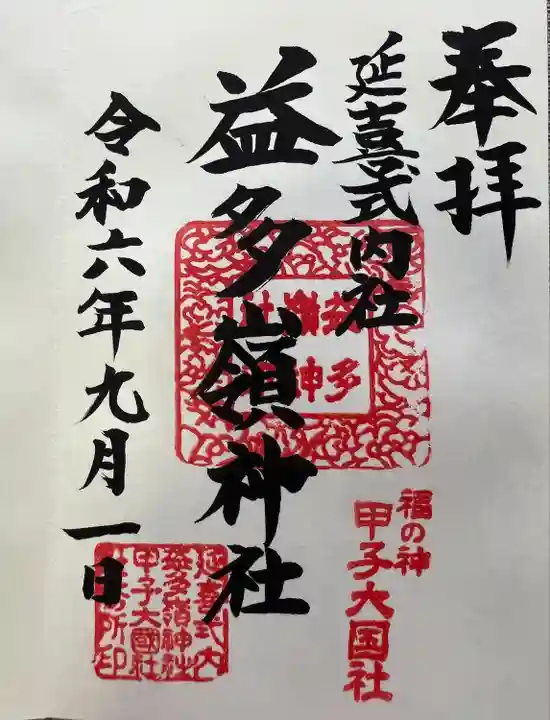 奉拝
延喜式内社
益多嶺神社
令和六年九月一日
福の神
甲子大国社
延喜式内
益多嶺神社
甲子大國社
所印